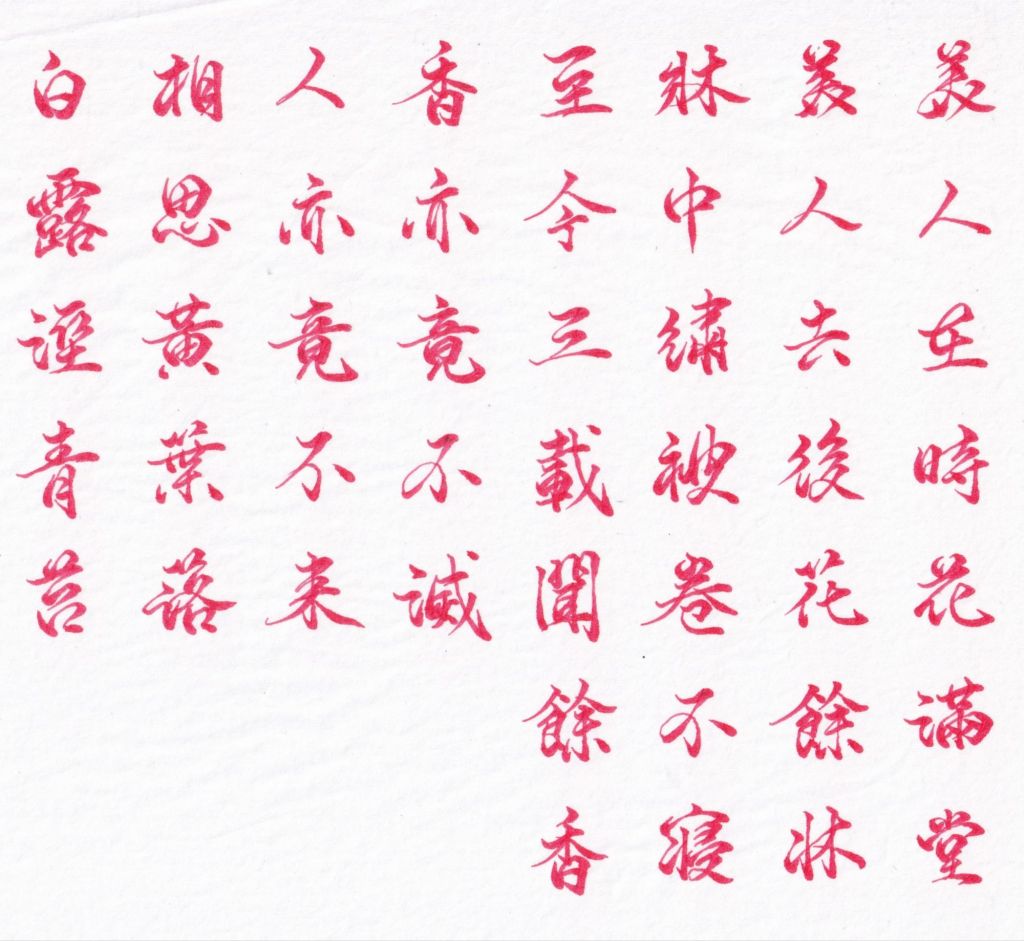 美人在時花滿堂
美人去後花餘牀
牀中繡被卷不寢
至今三載聞餘香
香亦竟不滅
人亦竟不来
相思黃葉落
白露溼青苔